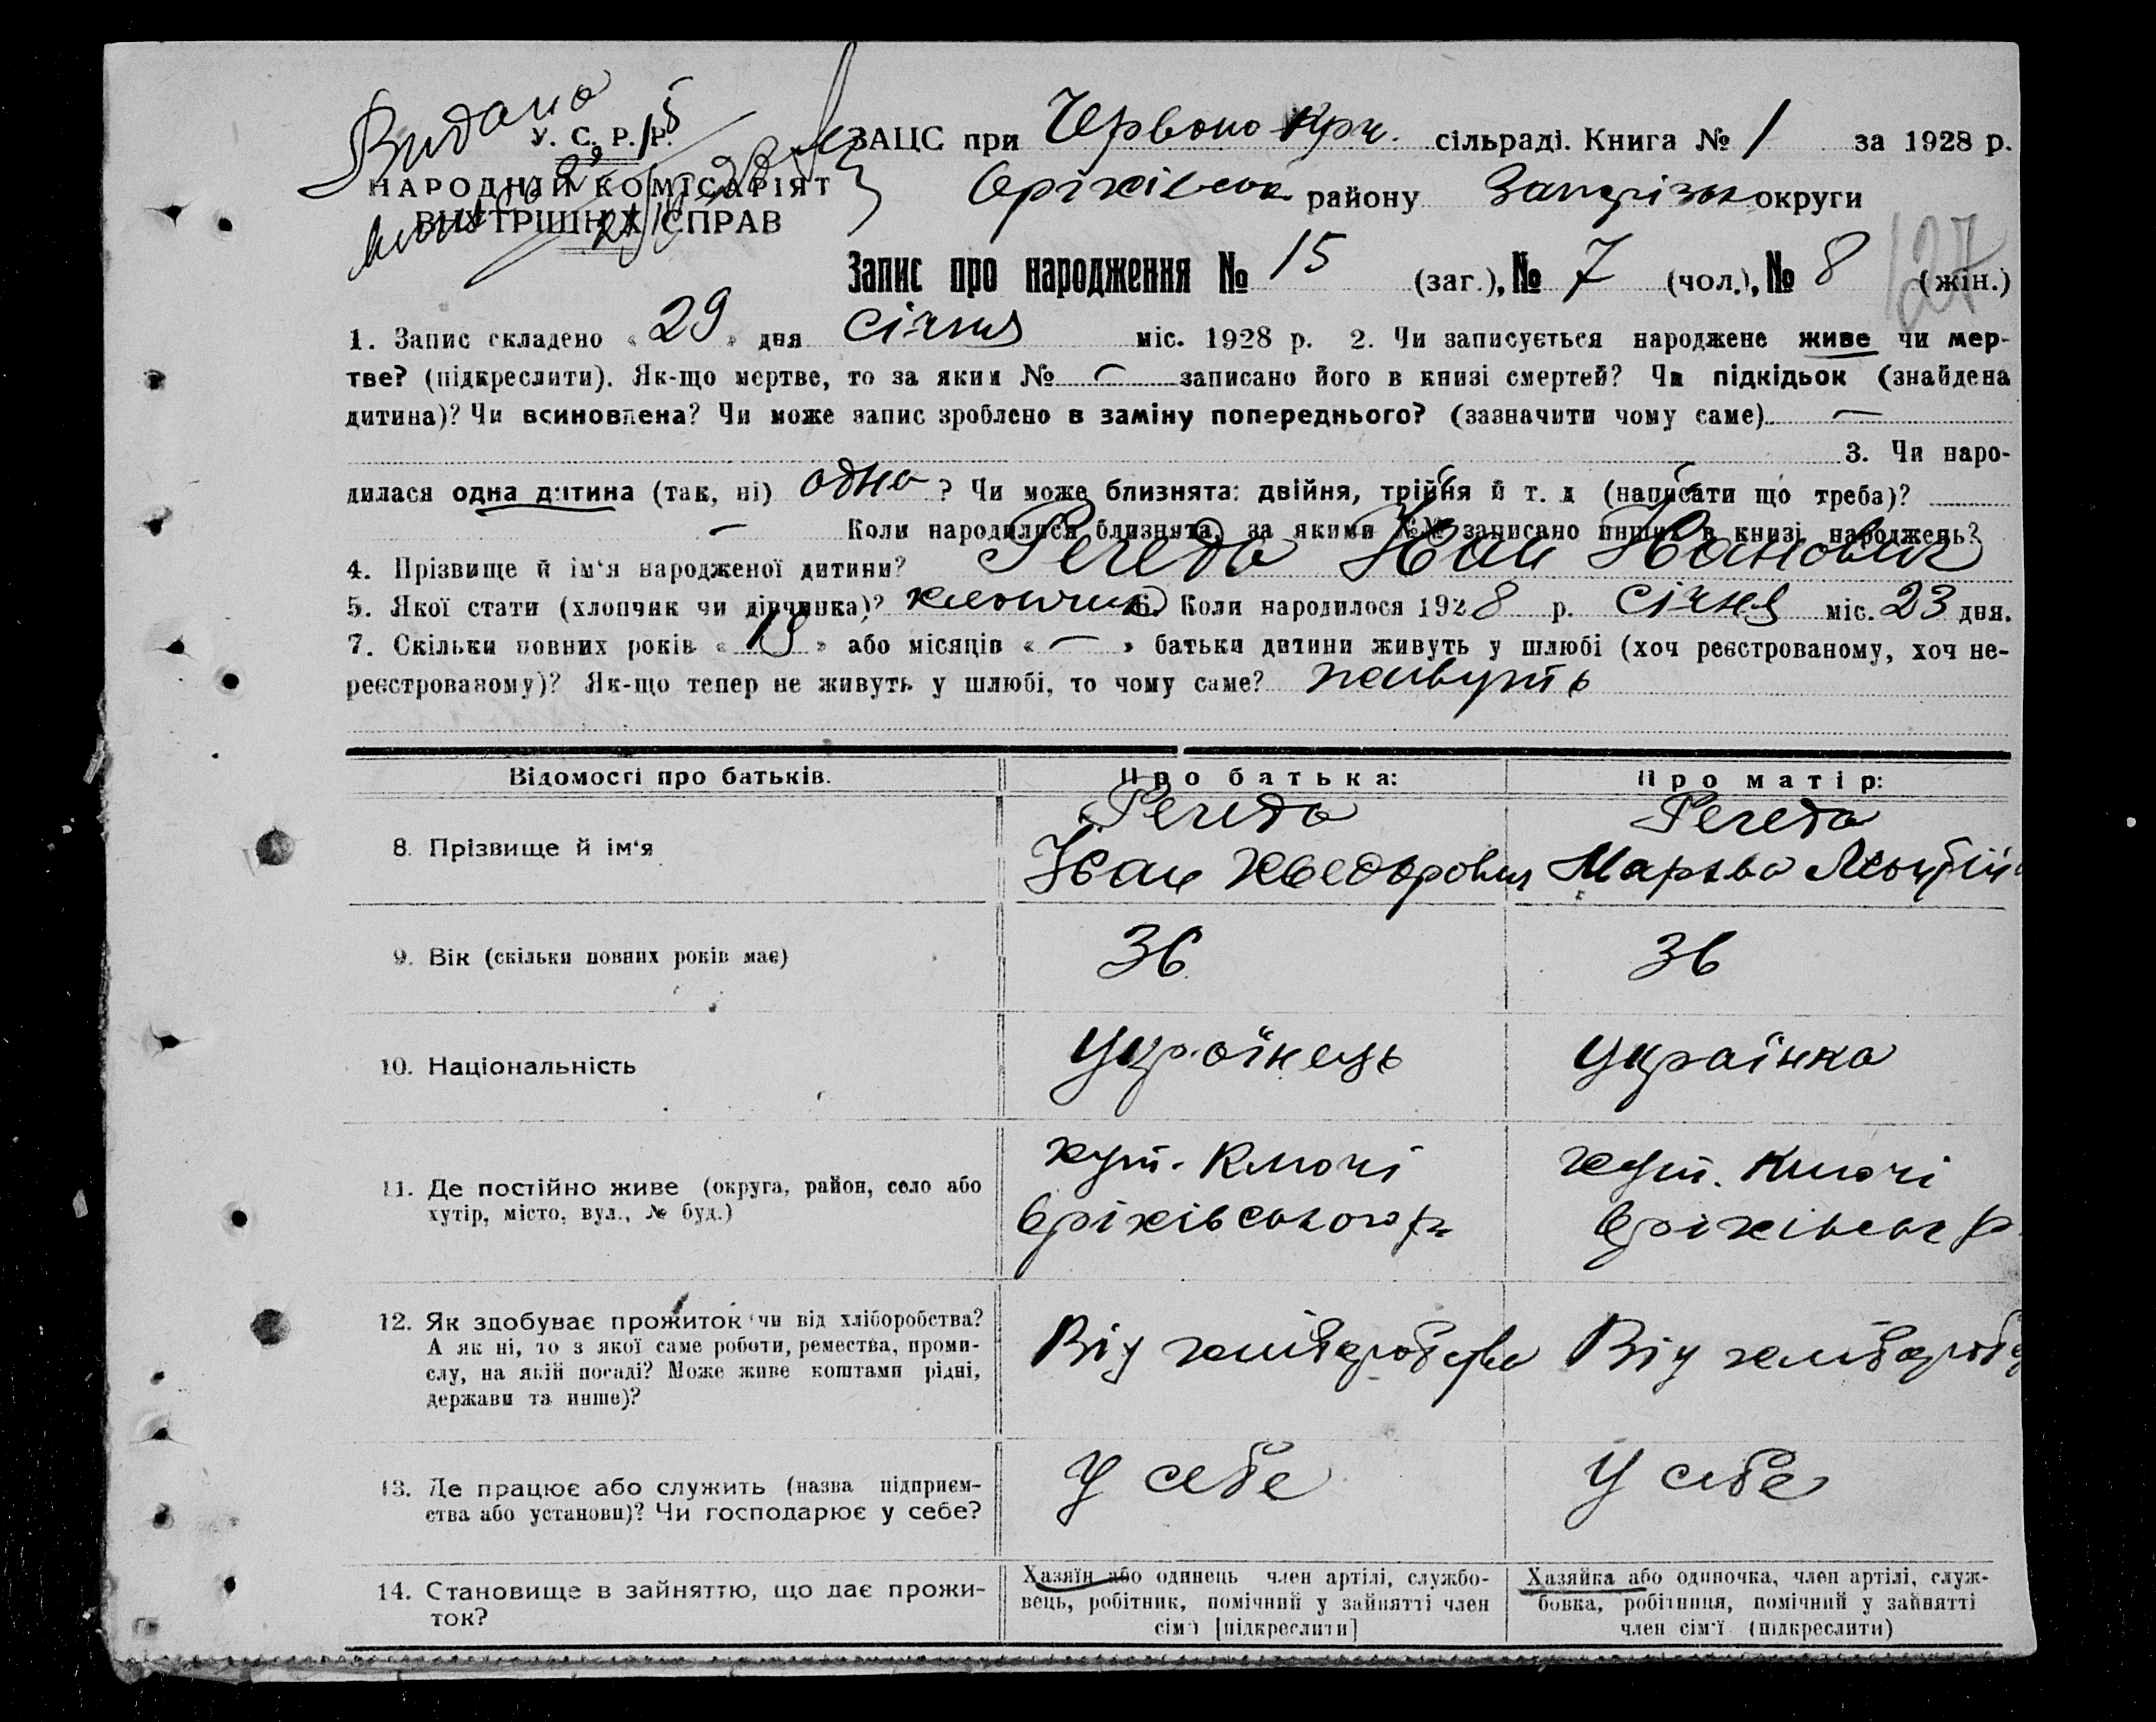 Видано
У. С. Р. Р.
НАРОДНІЙ КОМІСАРІЯТ
ВНУТРІШНІХ СПРАВ
ЗАЦС при Червоно Крин. сільраді. Книга № 1 за 1928 р.
Оріхівськ району Запорізьк округи
127
Запис про народження № 15 (заг.), № 7 (чол.), № 8 (жін.)
1. Запис складено « 29 » дня січня міс. 1928 р. 2. Чи записується народжене живе чи мер-
тве? (підкреслити). Як-що мертве, то за яким № — записано його в книзі смертей? Чи підкідьок (знайдена
дитина)? Чи всиновлена? Чи може запис зроблено в заміну попереднього? (зазначити чому саме) —
3. Чи наро-
дилася одна дитина (так, ні) одна ? Чи може близнята: двійня, трійня й т. д (написати що треба)?
— Коли народилися близнята, за якими №№ записано инших в книзі народжень?
4. Прізвище й ім'я народженої дитини? Регеда Іван Іванович
5. Якої стати (хлопчик чи дівчинка)? хлопчик 6. Коли народилося 1928 р. січня міс. 23 дня.
7. Скільки повних років « 18 » або місяців « — » батьки дитини живуть у шлюбі (хоч реєстрованому, хоч не-
реєстрованому)? Як-що тепер не живуть у шлюбі, то чому саме? живуть
Відомості про батьків. Про батька: Про матір:
8. Прізвище й ім'я
Регеда Регеда
Іван Хведорович Марьва
9. Вік (скільки повних років має) 36 36
10. Національність Українець Українка
11. Де постійно живе (округа, район, село або
хутір, місто, вул., № буд.)
хут. Ключі хут. Ключі
Оріхівського р Оріхівськ р
12. Як здобуває прожиток чи від хліборобства?
А як ні, то з якої саме роботи, ремества, проми-
слу, на якій посаді? Може живе коштами рідні,
держави та инше)?
Від хліборобства Від хлібороб
13. Де працює або служить (назва підприєм-
ства або установи)? Чи господарює у себе?
У себе У себе
14. Становище в зайняттю, що дає прожи-
ток?
Хазяїн або одинець член артілі, службо-
вець, робітник, помічний у зайнятті член
сім'ї [підкреслити]
Хазяйка або одиночка, член артілі, служ-
бовка, робітниця, помічний у зайнятті
член сім'ї (підкреслити)